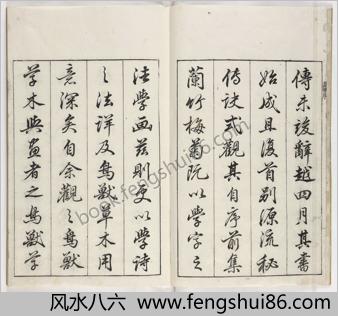 傳未竣辭越四月其書
始成且復首別源流秘
傳訣式觀其自序前集
蘭竹梅菊既以學字之
法學画茲則更以學詩
之法詳及鳥獸草木用
意深矣自余觀之鳥獸
草木與畫者之鳥獸學
book.fengshui86.com
风水八六 www.fengshui86.com